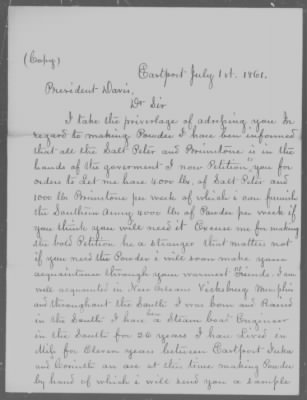 (Copy)
Eastport July 1st. 1861.
President Davis,
Dr Sir
I take the priverlage of adressing you In
regard to making Powder I have been informed
that all the Salt Peter and Brimstone is in the
hands of the goverment I now Petition you for
orders to Let me have 4000 lbs. of Salt Peter and
1000 lbs Brimstone per week of which i can furnish
the Southern Army 4000 lbs of Powder per week if
you think you will need it Excuse me for making
the bold Petition be a stranger that matters not
if you need the Powder i will soon make your
acquaintance through your warmest Friends. I am
well acquainted in New Orleans Vicksburg Memphis
and throughout the South I was born and Raised
in the South I have been a Steam boat Engineer
in the South for 26 years I have Lived in
Miss for Eleven years between Eastport Iuka
and Corinth an are at this time making Powder
by hand of which i will send you a sample